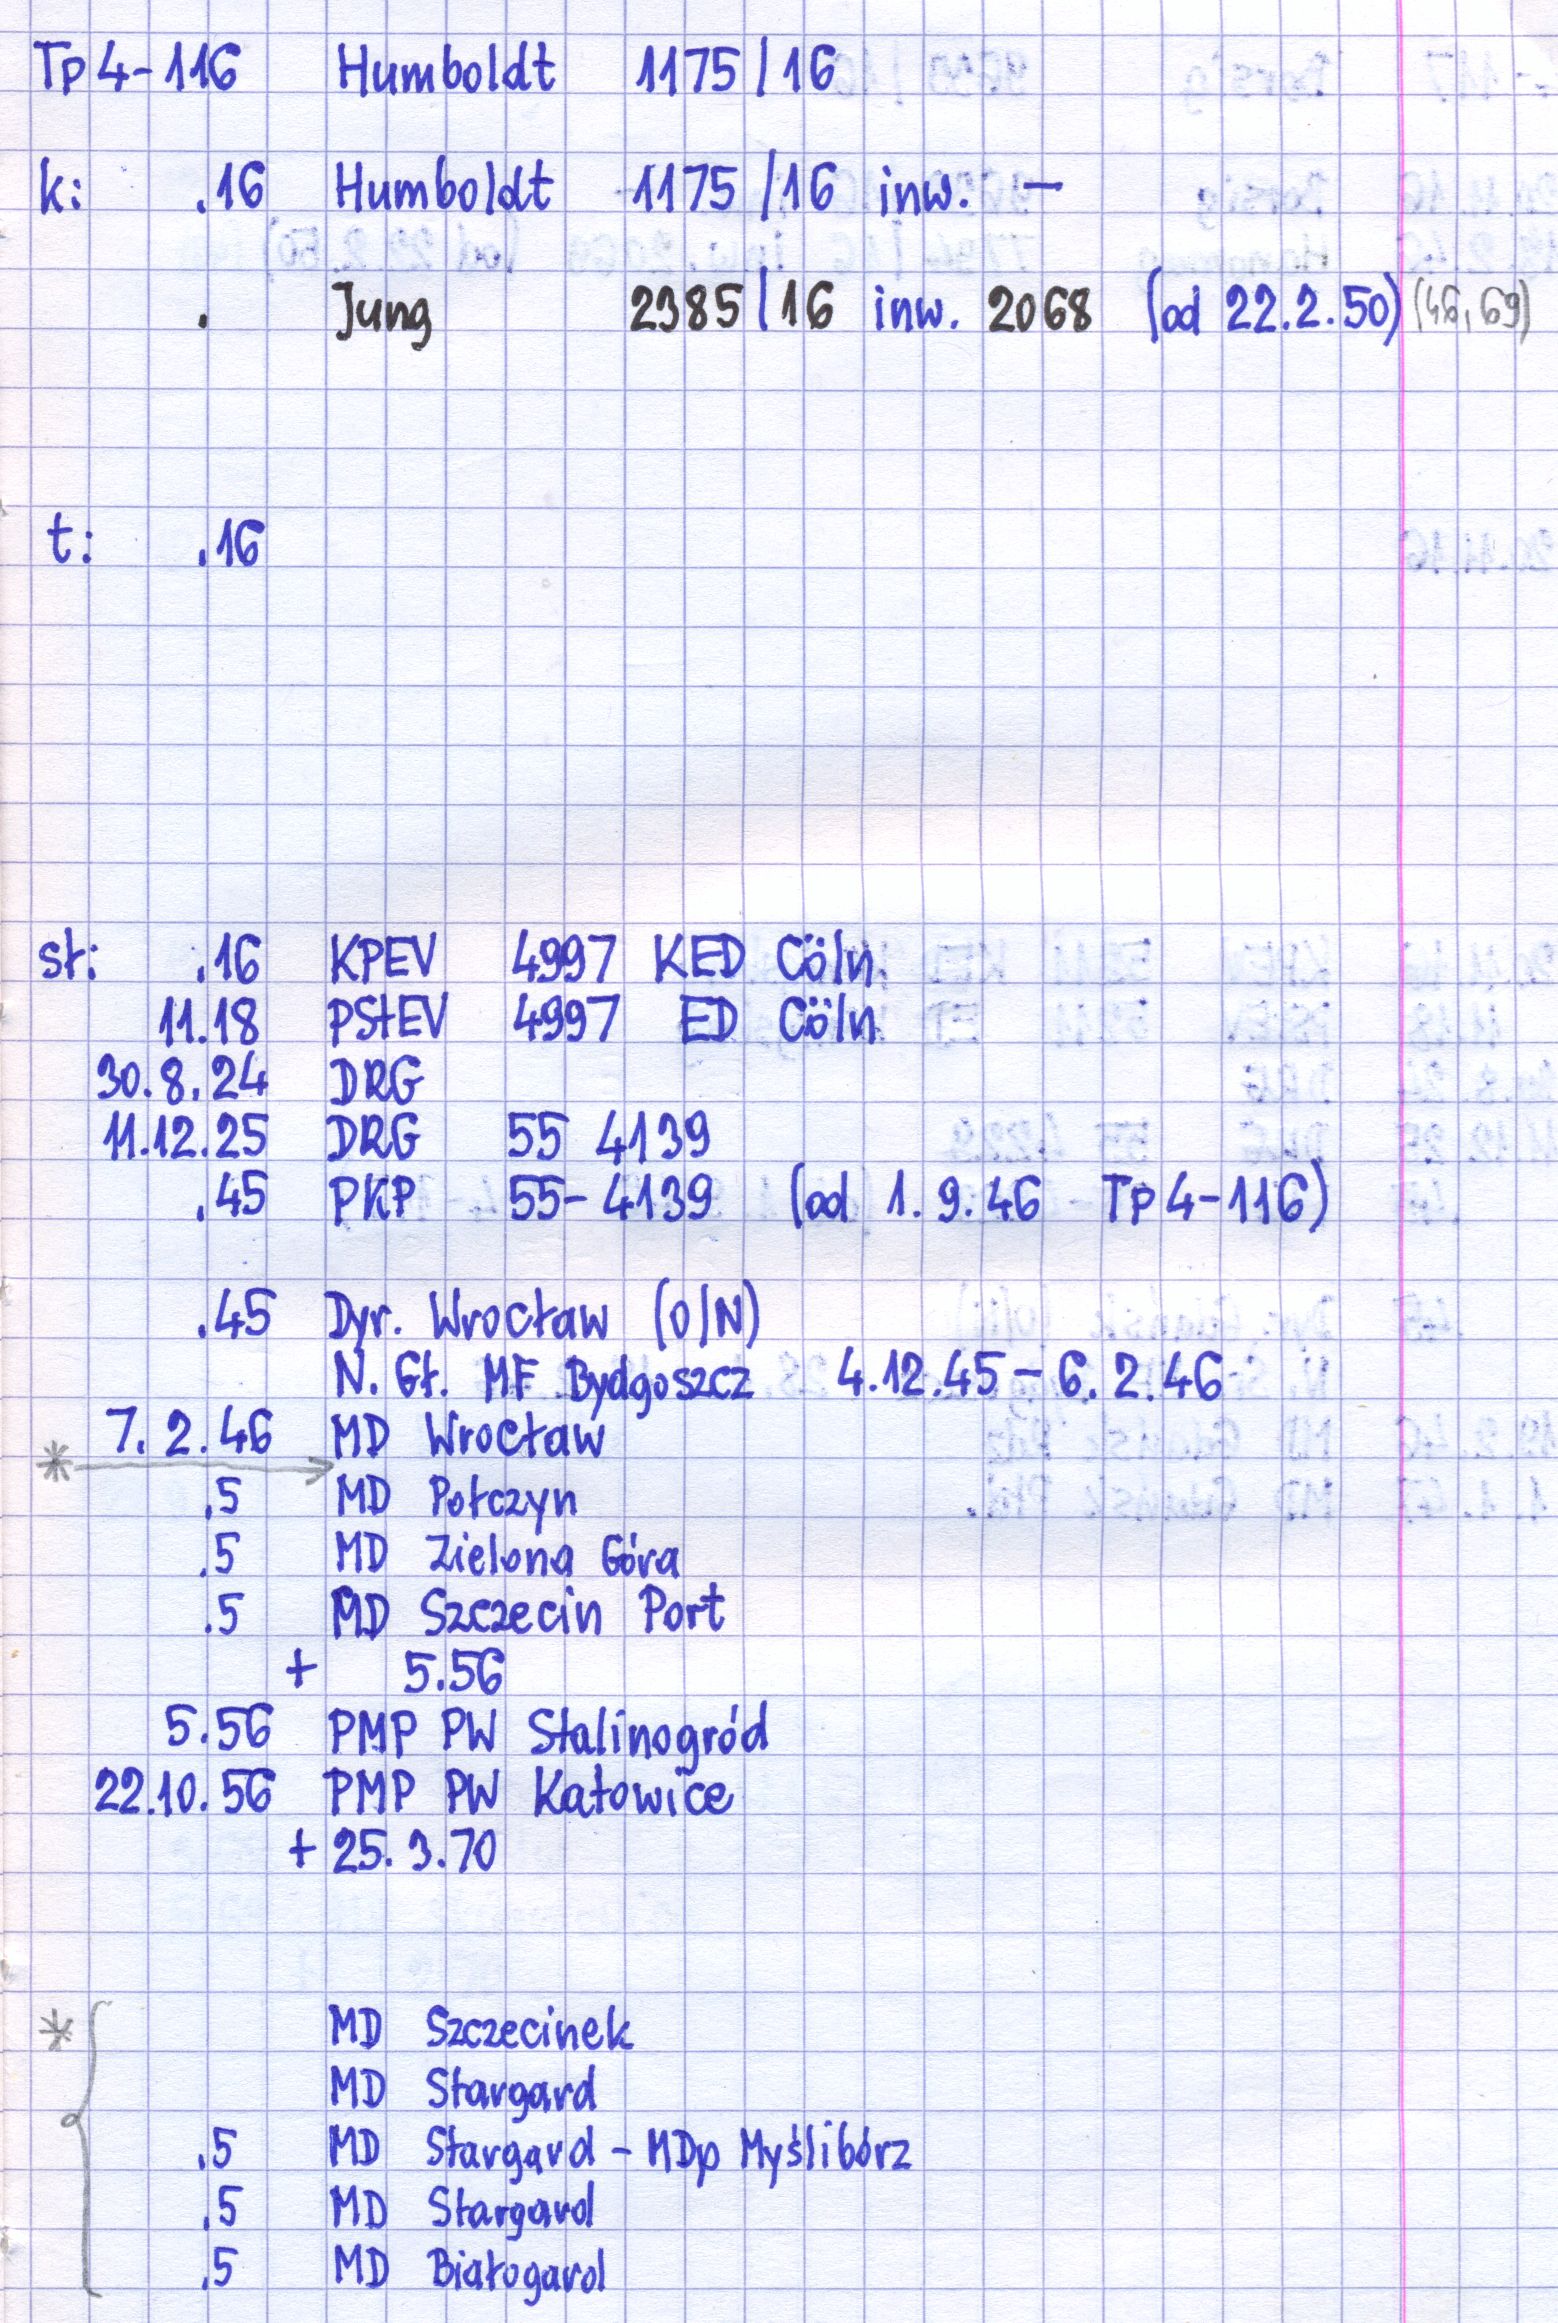 Tp4-116 Humboldt 1175/16
k: .16 Humboldt 1175/16 inw. —
. Jung 2385/16 inw. 2068 (od 22.2.50) (46,69)
t: .16
sł: .16 KPEV 4997 KED Cöln
11.18 PStEV 4997 ED Cöln
30.8.24 DRG
11.12.25 DRG 55 4139
.45 PKP 55-4139 (od 1.9.46 Tp4-116)
.45 Dyr. Wrocław (O/N)
N. Gł. MF Bydgoszcz 4.12.45-6.2.46
7.2.46 MD Wrocław
*
.5 MD Połczyn
.5 MD Zielona Góra
.5 MD Szczecin Port
+ 5.56
5.56 PMP PW Stalinogród
22.10.56 PMP PW Katowice
+ 25.3.70
* MD Szczecinek
MD Stargard
.5 MD Stargard - MDp Myślibórz
.5 MD Stargard
.5 MD Białogard